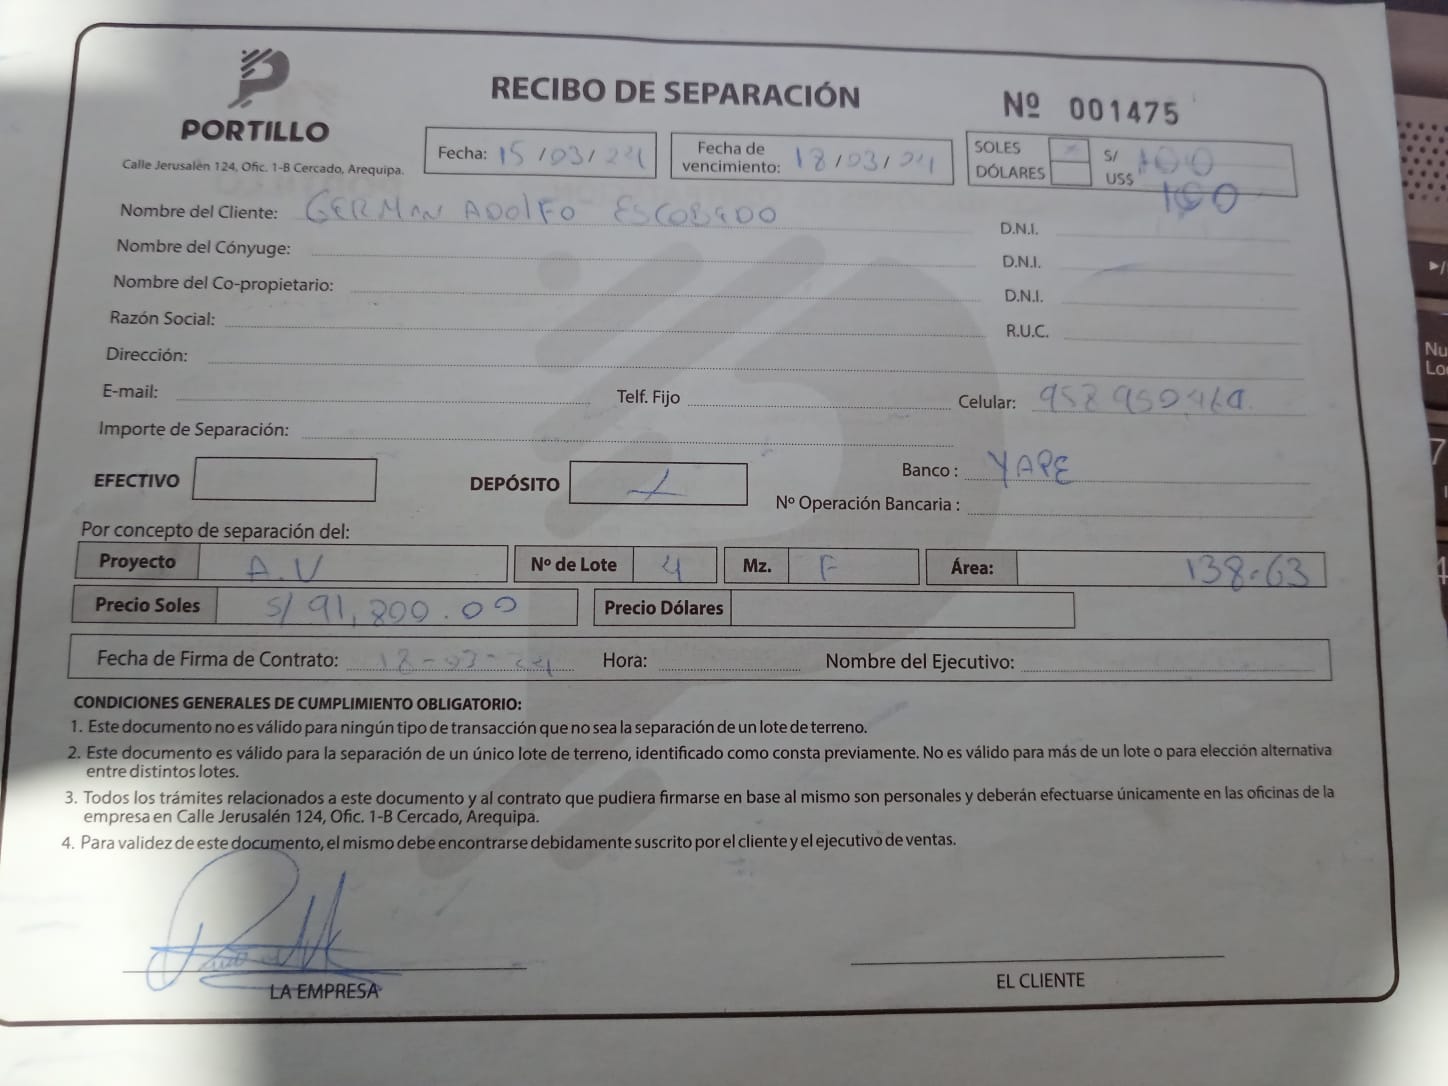 PORTILLO
Calle Jerusalén 124, Ofic. 1-B Cercado, Arequipa.
RECIBO DE SEPARACIÓN
Nº 001475
Fecha: 15/03/24
Fecha de vencimiento: 18/03/24
SOLES S/ 100
DÓLARES US$
100
Nombre del Cliente: GERMAN ADOLFO ESCOBEDO D.N.I.
Nombre del Cónyuge: D.N.I.
Nombre del Co-propietario: D.N.I.
Razón Social: R.U.C.
Dirección:
E-mail: Telf. Fijo Celular:
Importe de Separación:
EFECTIVO DEPÓSITO Banco: YAPE
Nº Operación Bancaria:
Por concepto de separación del:
Proyecto A.V Nº de Lote 4 Mz. F Área: 138.63
Precio Soles S/ 91,800.00 Precio Dólares
Fecha de Firma de Contrato: 18-03-24 Hora: Nombre del Ejecutivo:
CONDICIONES GENERALES DE CUMPLIMIENTO OBLIGATORIO:
1. Este documento no es válido para ningún tipo de transacción que no sea la separación de un lote de terreno.
2. Este documento es válido para la separación de un único lote de terreno, identificado como consta previamente. No es válido para más de un lote o para elección alternativa
entre distintos lotes.
3. Todos los trámites relacionados a este documento y al contrato que pudiera firmarse en base al mismo son personales y deberán efectuarse únicamente en las oficinas de la
empresa en Calle Jerusalén 124, Ofic. 1-B Cercado, Arequipa.
4. Para validez de este documento, el mismo debe encontrarse debidamente suscrito por el cliente y el ejecutivo de ventas.
LA EMPRESA
EL CLIENTE